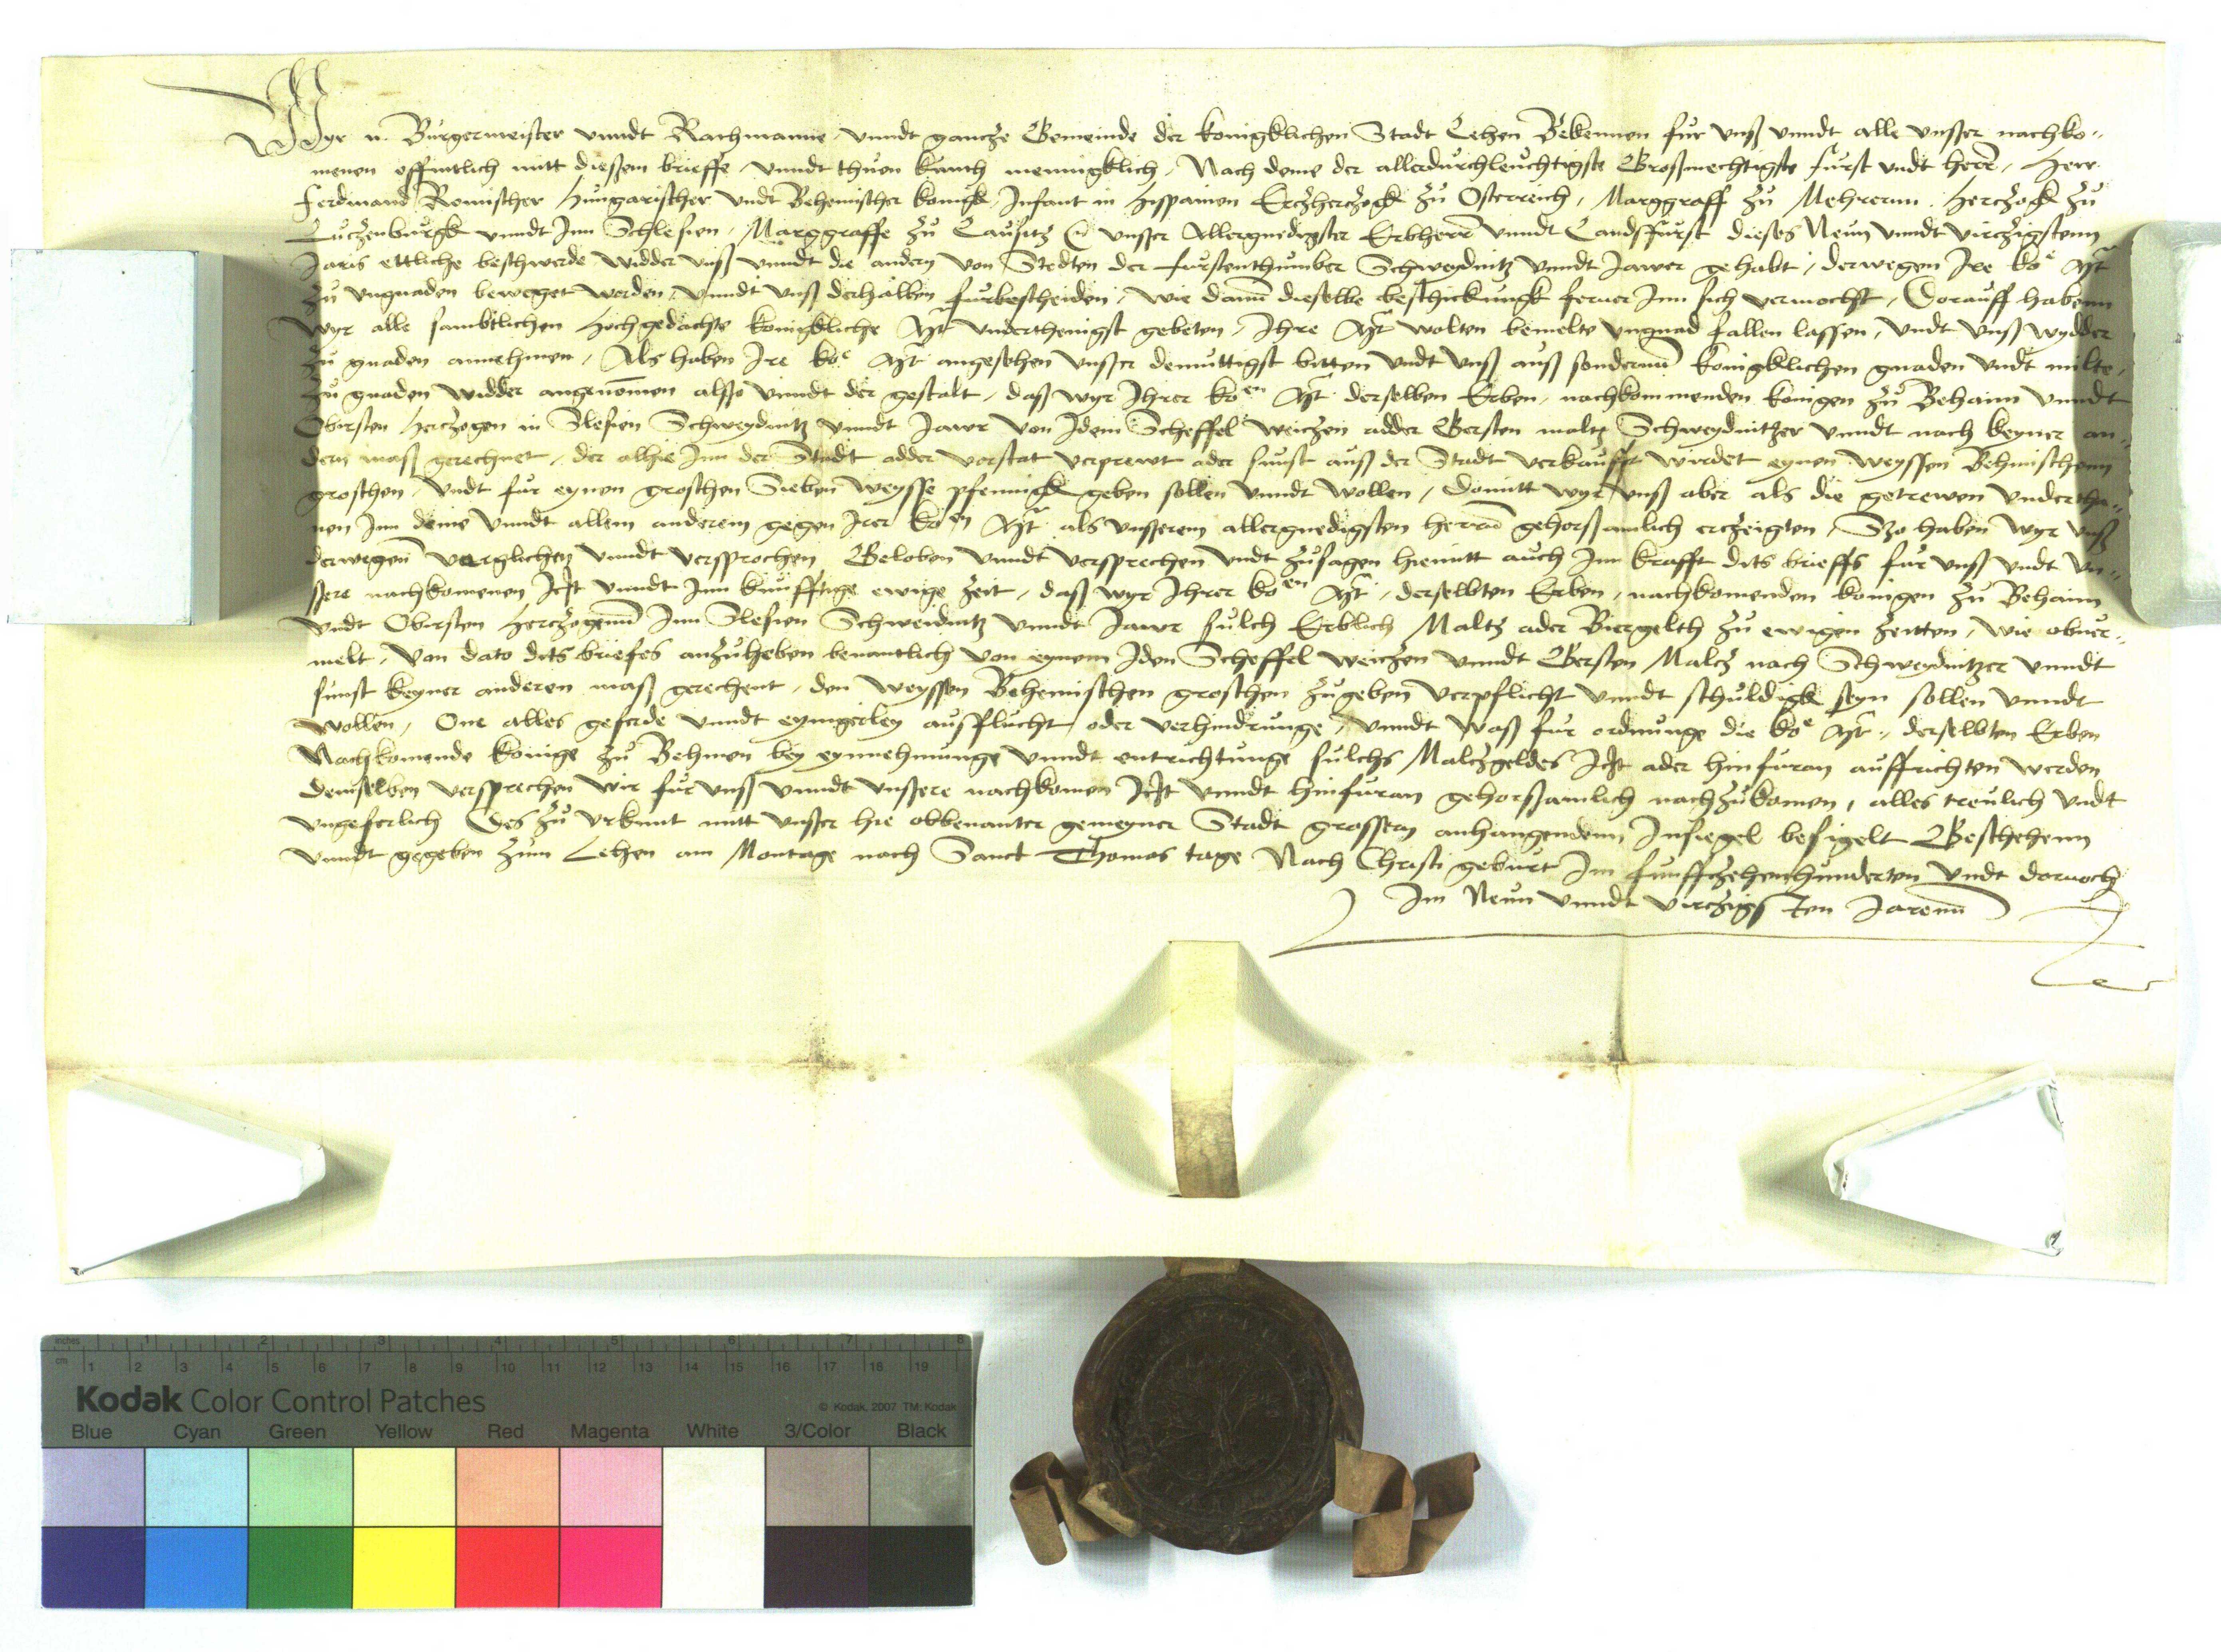 Wyr n. Burgermeister vnndt Rathmanne, vnndt gancze Gemeinde der konigklichen Stadt Lehen Bekennen fur vnß vnndt alle vnsser nachko-
menen offintlich mitt diessem brieffe, vnndt thuen kunth mennigklich, Nach deme der allerdurchleuchtigste Großmechtigste furst vndt herr, Herr
Ferdinand Romischer Hungarischer vndt Behemischer konigk, Infant in Hyspanien Erczherczogk zu Osterreich, Marggraff zu Mehrernn Herczogk zu
Luczenburgk vnndt Inn Schlesien, Marggraffe zu Lausitz vnsser Allergnedigster Erbherr vnndt Landsfurst dieses Neun vnndt virczigstenn
Jaris ettliche beschwerde widder vnß vnndt die andern von Stedten der furstenthumber Schweydnitz vnndt Jawer gehabt, derwegen Ire koe Mt
zu vngnaden beweget worden, vnndt vnß derhalben furbescheiden, wie dann dieselbe beschickungk ferner Inn sich vermocht, Dorauff habenn
wyr alle sambtlichen Hochgedachte konigkliche Mt vnderthenigst gebeten, Ihre Mt wolten bemelte vngnad fallen lassen, vndt vnß wydder
zu gnaden annehmen, Als haben Ire koe Mt angesehen vnsser demuttigst bitten vndt vnß auß sondernn konigklichen gnaden vndt milte,
zu gnaden widder angenomen alsso vnndt der gestalt, daß wyr Ihrer koen Mt derselben Erben, nachkommenden konigen zu Behaim vnndt
Obirsten Herczogen in Slesien Schweydnitz vnndt Jawr von Idem Scheffel weiczen adder Gersten maltz Schweydnitzer vnndt nach keyner an-
dern maß gerechnet, der alhie Inn der Stadt adder vorstat verprewt ader sunst auß der Stadt verkaufft wirdet eynen weyssen Behmischenn
groschen, vndt fur eynen groschen Sieben weysse pfennigk geben sollen vnndt wollen, Domitt wyr vnß aber als die getrewen vndertha-
nen Inn deme vnndt allem anderem gegen Irer koen Mt als vnsserem allergnedigsten herrn gehorßamlich erczeigten, Szo haben wyr vnß
derwegen verglichen vnndt versprochen Geloben vnndt versprechen vndt zusagen hiemitt auch Inn krafft dits brieffs fur vnß vndt vn-
ssere nachkomenen Iczt vnndt Inn kunfftige ewige zeit, daß wyr Ihrer koen Mt, derselbten Erben, nachkomenden konigen zu Behaim
vndt Obirsten Herczogenn Inn Slesien Schweidnitz vnndt Jawr sulch Erblich Maltz ader Biergelth zu ewigen zeitten, wie obuer-
melt, von dato dits briefes anzuheben benantlich von eynem Iden Scheffel weiczen vnndt Gersten Malcz nach Schweydnitzer vnndt
sunst keyner anderen maß gerechent, den weyssen Behemischen groschen zugeben verpflicht vnndt schuldigk seyn sollen vnndt
wollen, One alles geferde vnndt eynigerley ausflucht, oder verhindrunge, vnndt waß fur ordnunge die koe Mt, derselbten Erben
Nachkomende konige zu Behmen bey eynnehmunge vnndt entrichtunge sulchs Malczgeldes Iczt ader hinfuran auffrichten werden
demselben versprechen wir fur vnß vnndt vnssere nachkomen Iczt vnndt hinfuran gehorßamlich nachzukomen, alles treulich vndt
vngeferlich Des zu vrkunt mitt vnsser hie obbenanter gemeyner Stadt grossern anhangendem Insiegel besigelt Geschehenn
vnndt gegeben zum Lehen am Montage nach Sanct Thomas tage Nach Christi geburt Im funffczehenhunderten vndt dornoch
Im Neun vnndt virczigsten Jarenn
inches 1 2 3 4 5 6 7 8
cm 1 2 3 4 5 6 7 8 9 10 11 12 13 14 15 16 17 18 19
Kodak Color Control Patches © Kodak, 2007 TM: Kodak
Blue Cyan Green Yellow Red Magenta White 3/Color Black